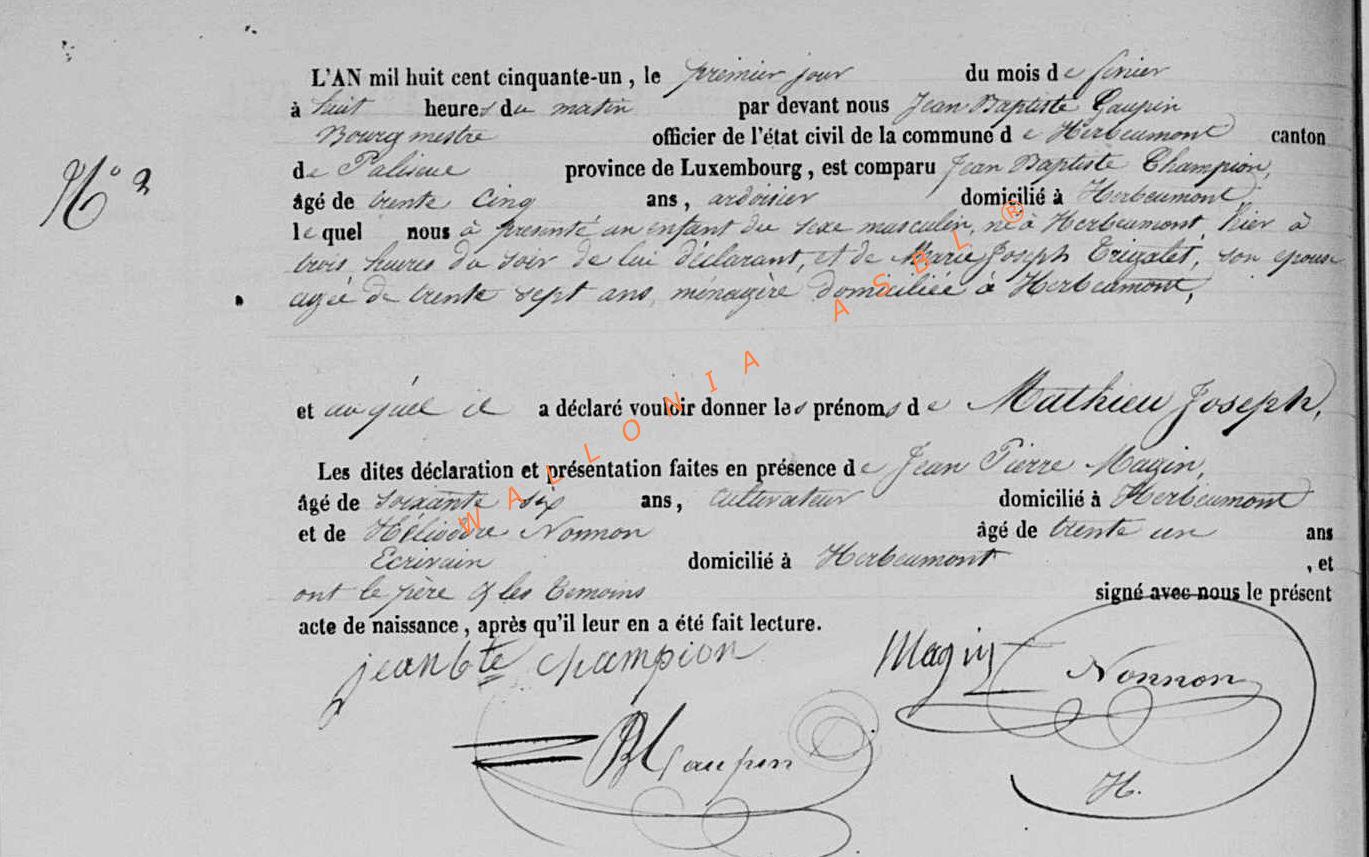 L'AN mil huit cent cinquante-un, le premier jour du mois de fevrier
à huit heures du matin par devant nous Jean Baptiste Gaupin
Bourgmestre officier de l'état civil de la commune de Herbeumont canton
de Paliseul province de Luxembourg, est comparu Jean Baptiste Champion,
N° 2
âgé de trente Cinq ans, ardoisier domicilié à Herbeumont
le quel nous à présenté un enfant du sexe masculin, né à Herbeumont, hier à
trois heures du soir de lui déclarant, et de Marie Joseph Trigalet, son epouse
agée de trente sept ans, ménagère domiciliée à Herbeumont,
et au quel il a déclaré vouloir donner les prénoms de Mathieu Joseph,
Les dites déclaration et présentation faites en présence de Jean Pierre Magin,
âgé de soixante six ans, cultivateur domicilié à Herbeumont
et de Héliodore Nonnon âgé de trente un ans
Ecrivain domicilié à Herbeumont, et
ont le père & les temoins signé avec nous le présent
acte de naissance, après qu'il leur en a été fait lecture.
jean bte champion Magin Nonnon
Gaupin H.
WALLONIA ASBL ®